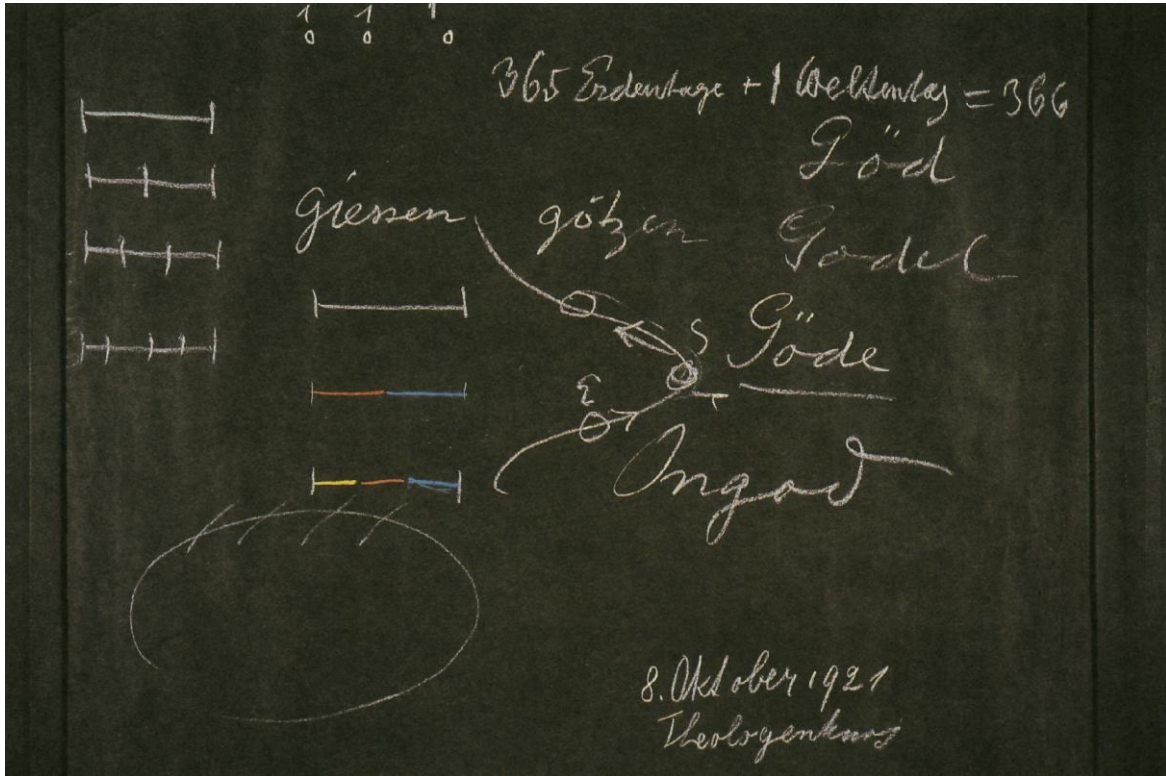 1 1 1
0 0 0
365 Erdentage + 1 Weltentag = 366
Göd
giessen götzen Godel
S Göde
E
Ingod
8. Oktober 1921
Theologenkurs